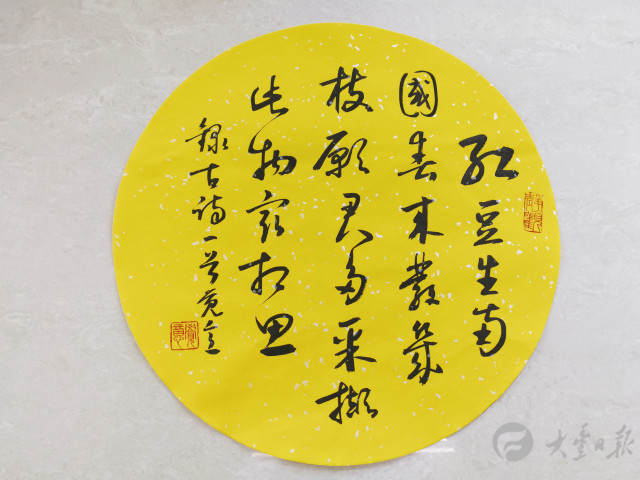 紅豆生南
國春来發幾
枝願君多采擷
此物最相思
錄古詩一首